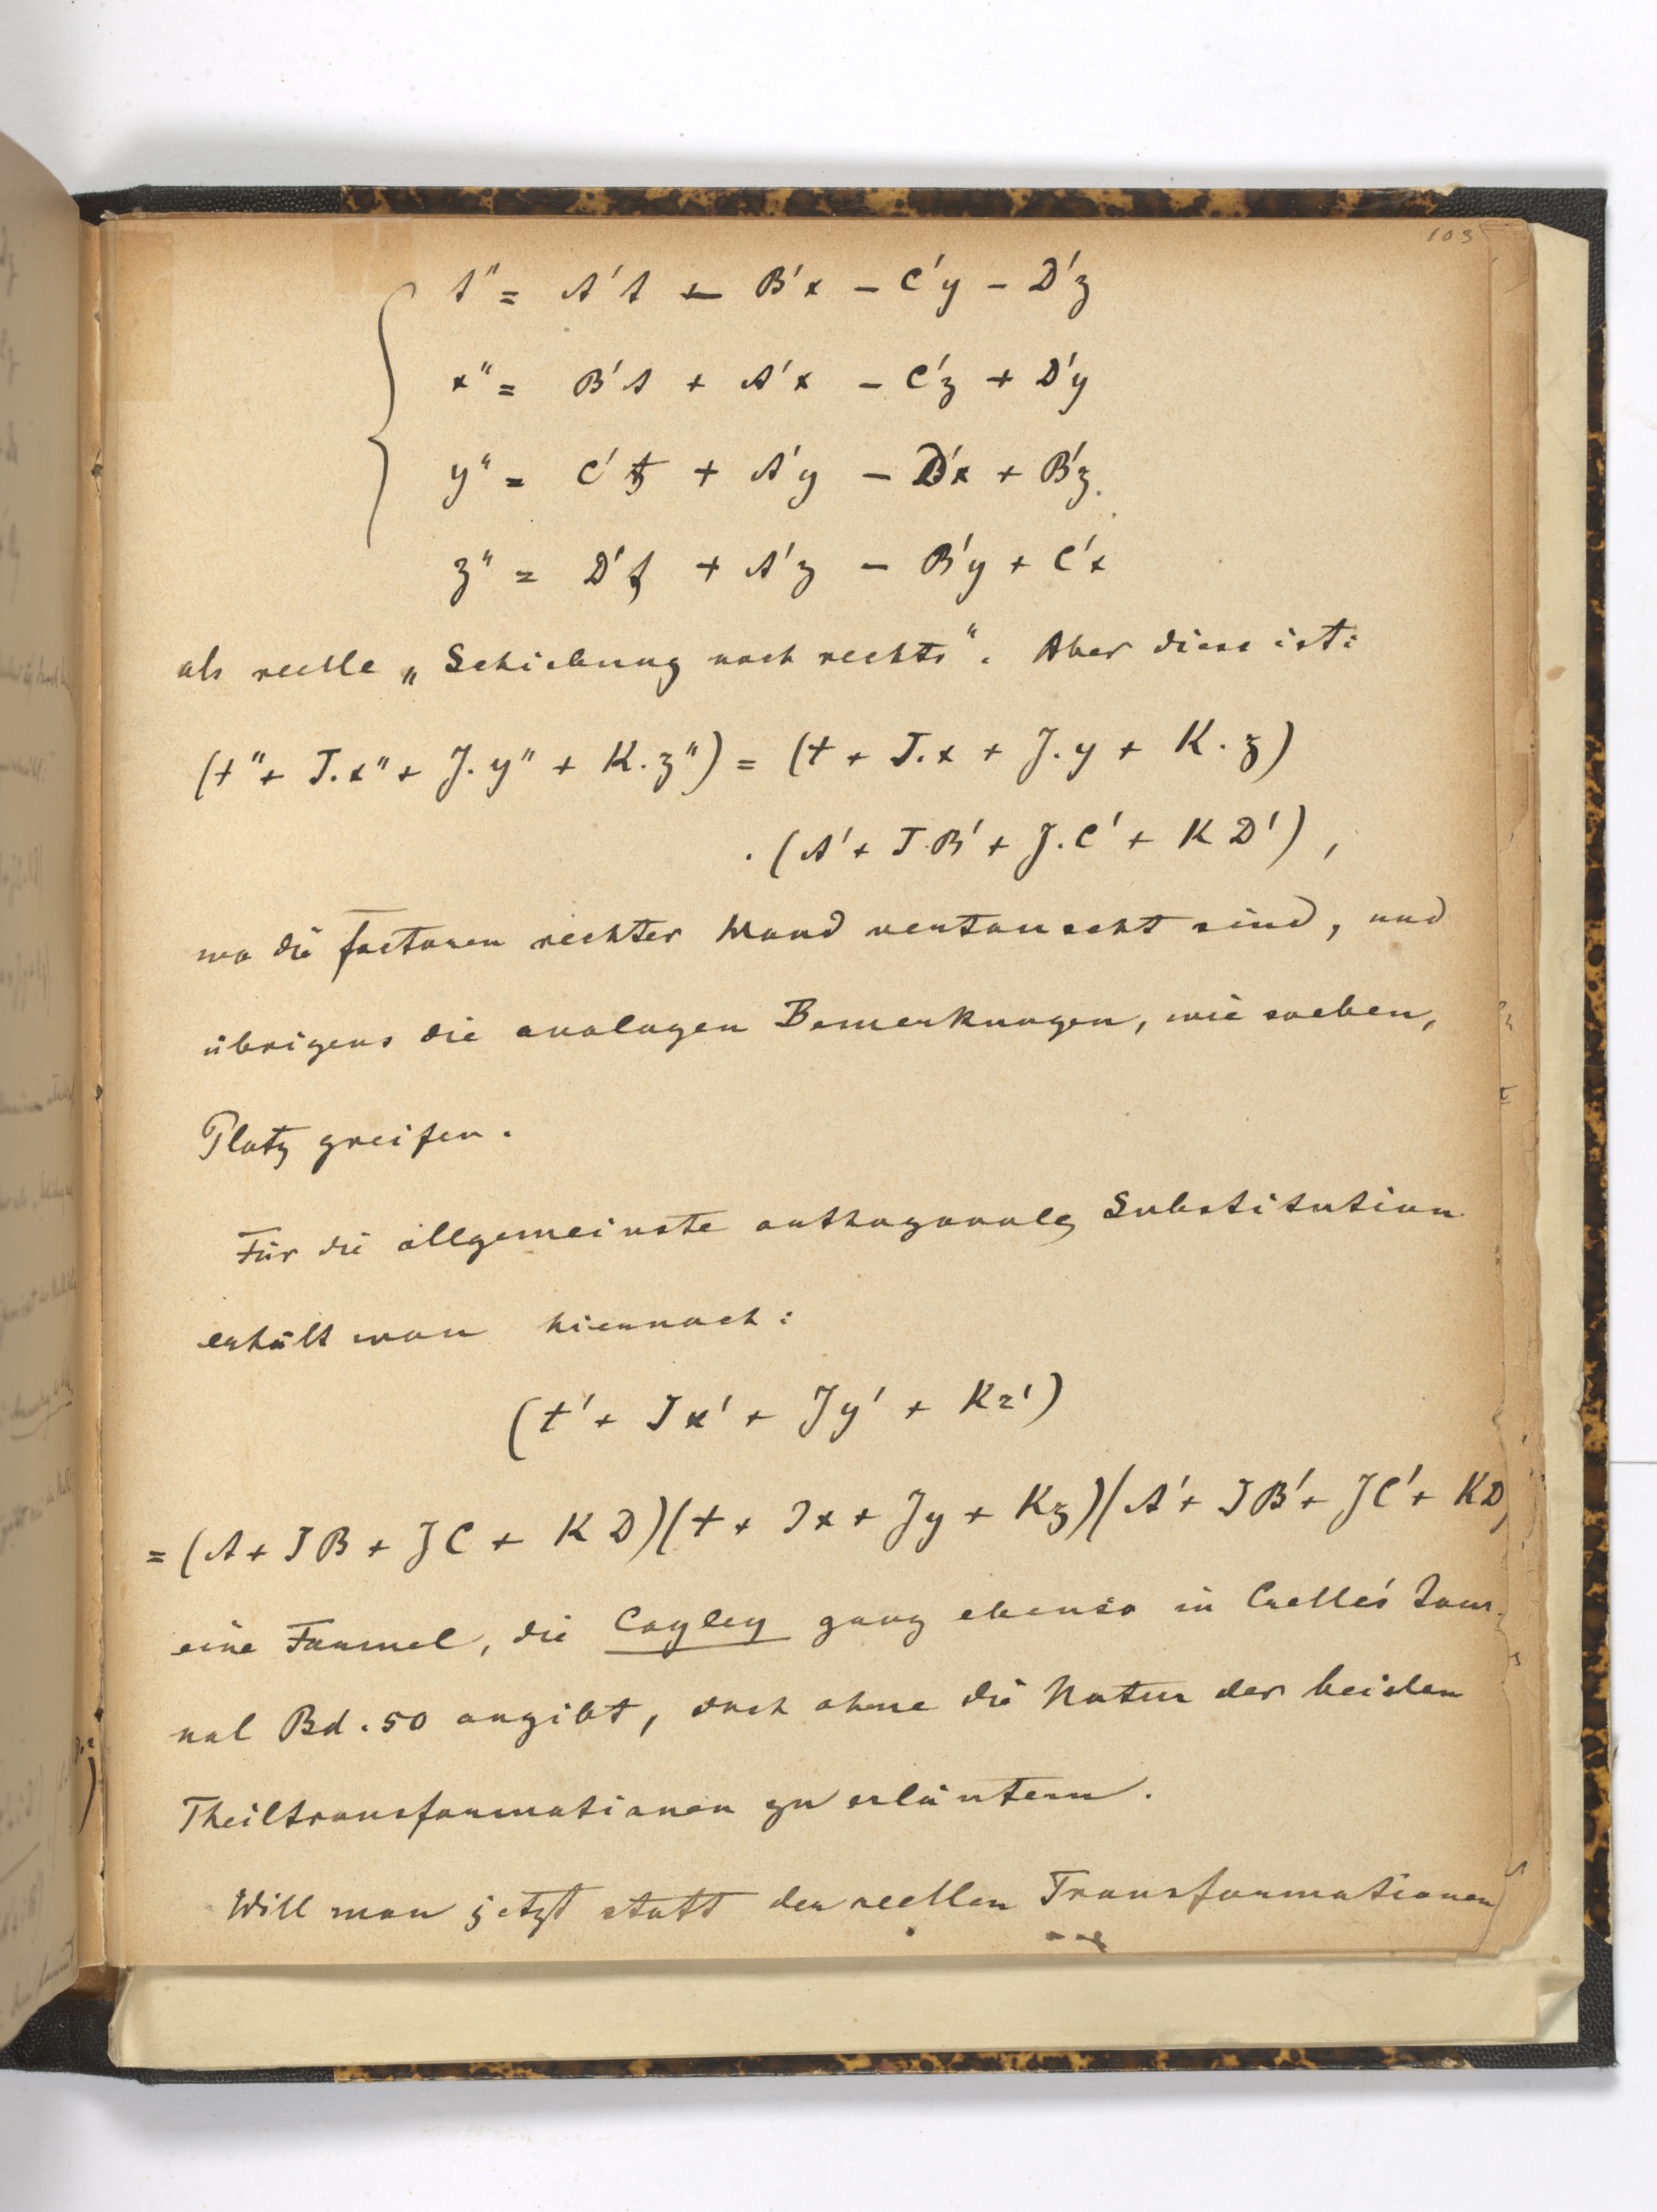 103
t" = A't - B'x - C'y - D'z
x" = B't + A'x - C'z + D'y
y" = C't + A'y - D'x + B'z.
z" = D't + A'z - B'y + C'x
als reelle „Schiebung nach rechts“. Aber diese ist:
(t" + J.x" + J.y" + K.z") = (t + J.x + J.y + K.z)
.(A' + J.B' + J.C' + KD'),
wo die Factoren rechter Hand vertauscht sind, und
übrigens die analogen Bemerkungen, wie soeben,
Platz greifen.
Für die allgemeinste orthogonale Substitution
erhält man hiernach:
(t' + Jx' + Jy' + Kz')
= (A + JB + JC + KD)(t + Jx + Jy + Kz)(A' + JB' + JC' + KD
eine Formel, die Cayley ganz ebenso in Crelle's Jour-
nal Bd. 50 angibt, doch ohne die Natur der beiden
Theiltransformationen zu erläutern.
Will man jetzt statt der reellen Transformationen